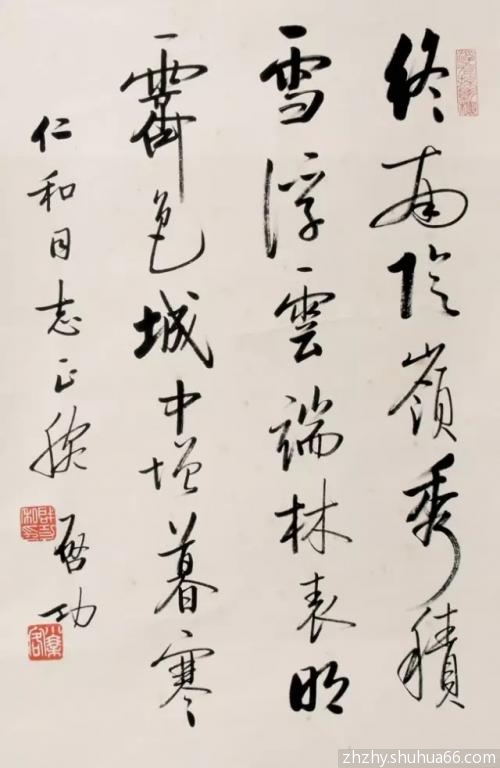 終南陰嶺秀積
雪浮雲端林表明
霽色城中增暮寒
仁和同志正腕
啟功
zhzhy.shuhua66.com